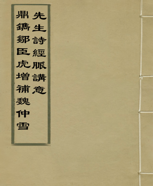 鼎鐫鄒臣虎增補魏仲雪
先生詩經脈講意